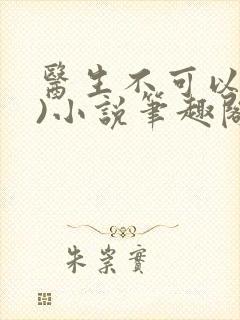 醫生不可以
)小說筆趣閣
朱崇實